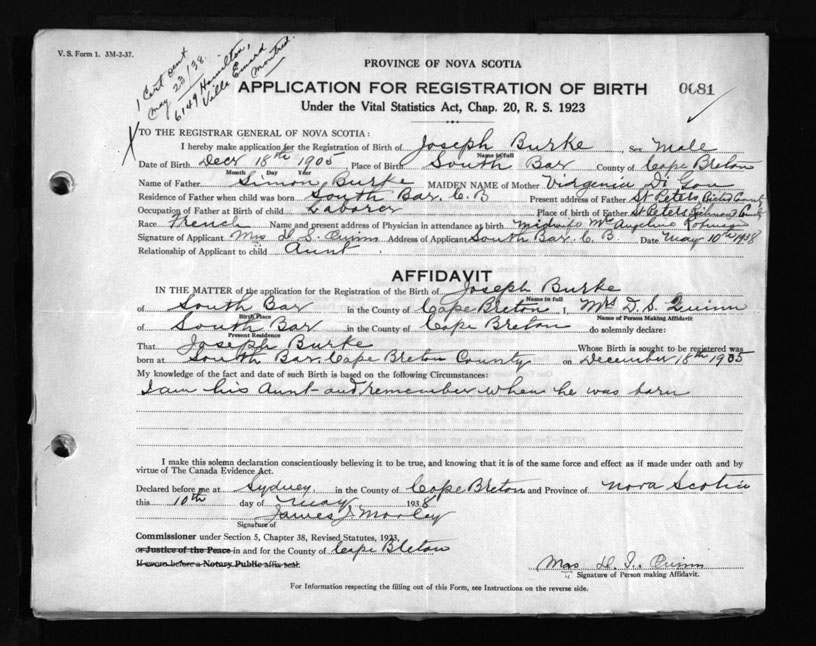 V. S. Form 1. 3M-2-37.
1 Cert sent
May 23/38.
6149 Hamilton,
Ville Emard
Montreal.
PROVINCE OF NOVA SCOTIA
APPLICATION FOR REGISTRATION OF BIRTH 0681
Under the Vital Statistics Act, Chap. 20, R. S. 1923
X TO THE REGISTRAR GENERAL OF NOVA SCOTIA:
I hereby make application for the Registration of Birth of Joseph Burke Sex Male
Name in full
Date of Birth Decr 18th 1905 Place of Birth South Bar County of Cape Breton
Month Day Year
Name of Father Simon Burke MAIDEN NAME of Mother Virginia Di
Residence of Father when child was born South Bar. C. B Present address of Father St Peters County
Occupation of Father at Birth of child Laborer Place of birth of Father St Peters Richmond County
Race French Name and present address of Physician in attendance at birth midwife Mrs Angeline
Signature of Applicant Mrs D S. Quinn Address of Applicant South Bar. C. B. Date May 10th 1938
Relationship of Applicant to child Aunt.
AFFIDAVIT
IN THE MATTER of the application for the Registration of the Birth of Joseph Burke
Name in full
of South Bar in the County of Cape Breton I, Mrs D. S. Quinn
Birth Place Name of Person Making Affidavit
of South Bar in the County of Cape Breton do solemnly declare:
Present Residence
That Joseph Burke Whose Birth is sought to be registered was
born at South Bar. Cape Breton County on December 18th 1905
My knowledge of the fact and date of such Birth is based on the following Circumstances:
I am his Aunt and remember when he was born
I make this solemn declaration conscientiously believing it to be true, and knowing that it is of the same force and effect as if made under oath and by
virtue of The Canada Evidence Act.
Declared before me at Sydney. in the County of Cape Breton and Province of Nova Scotia
this 10th day of May 1938
James J Morley
Signature of
Commissioner under Section 5, Chapter 38, Revised Statutes, 1923,
or Justice of the Peace in and for the County of Cape Breton
If sworn before a Notary Public affix seal.
Mrs D. S. Quinn
Signature of Person making Affidavit.
For Information respecting the filling out of this Form, see Instructions on the reverse side.